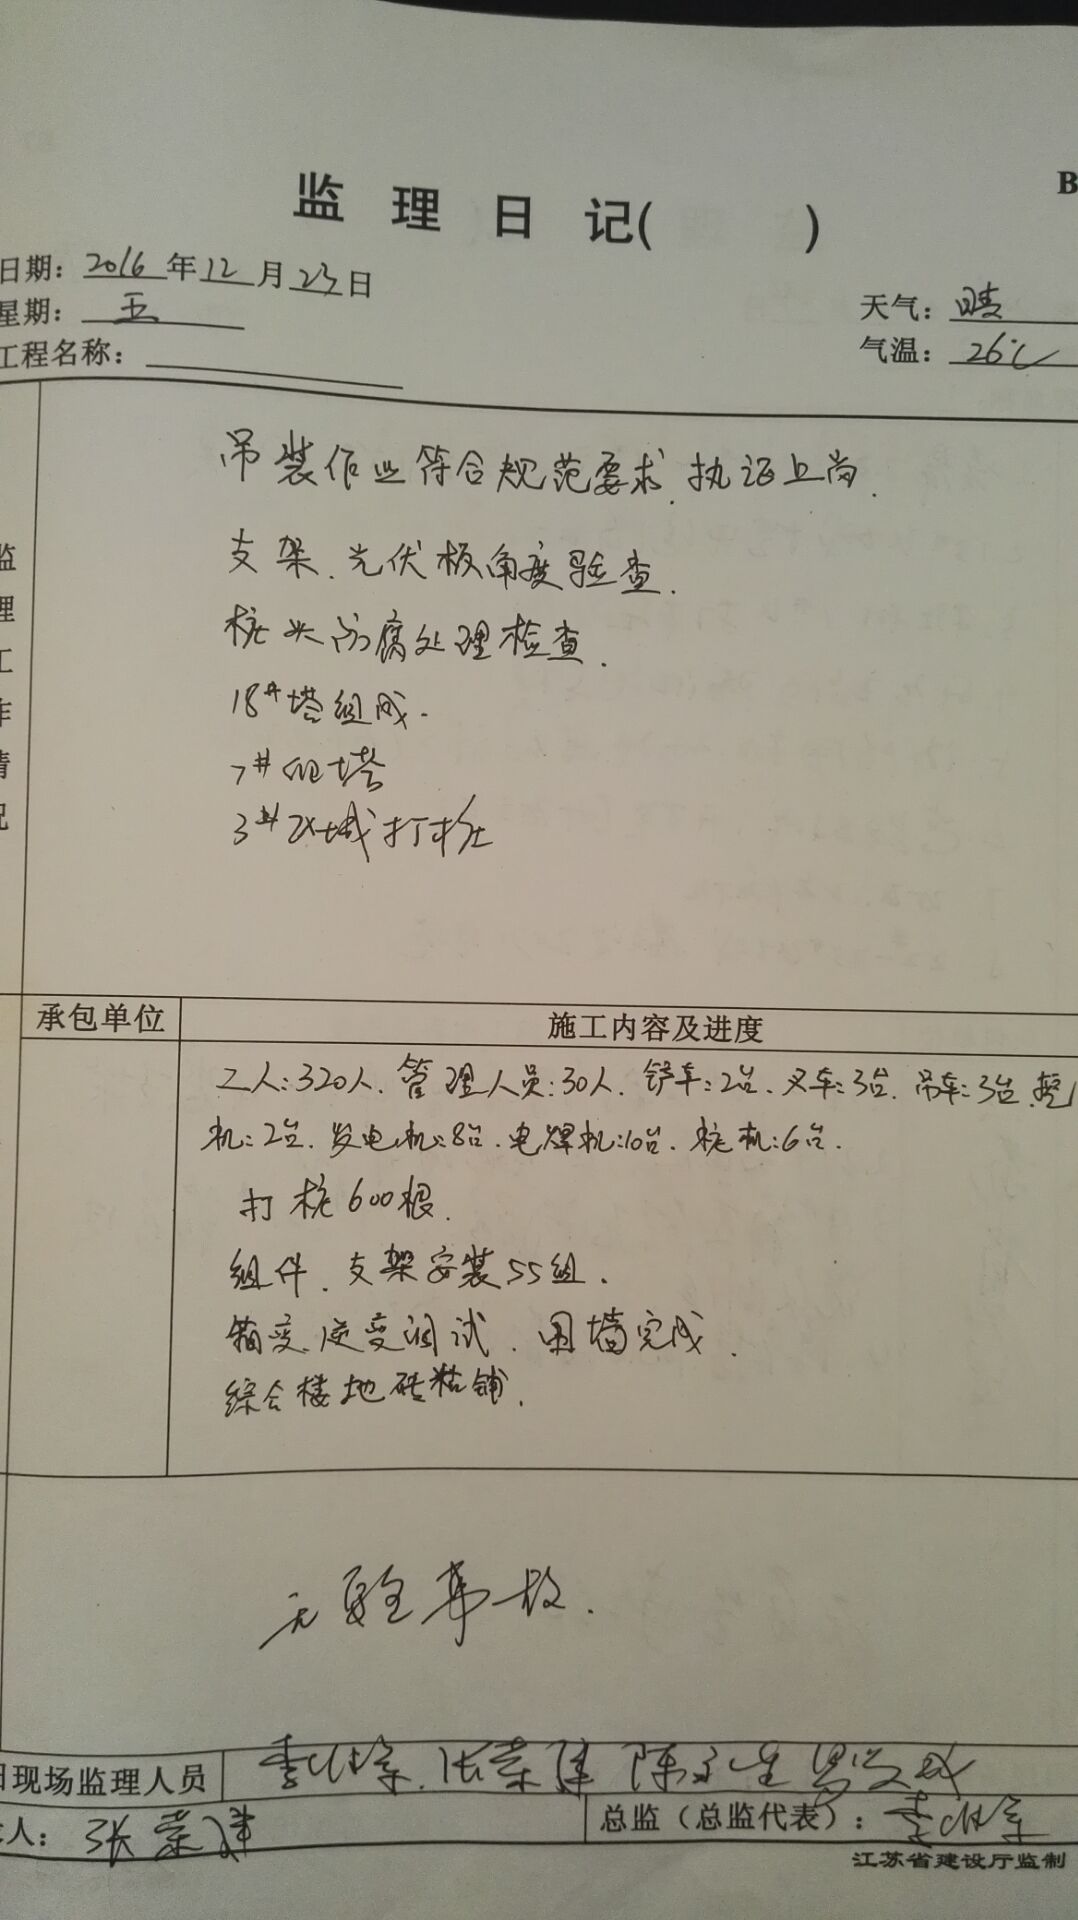 B
监理日记( )
日期：2016年12月23日
星期：五
天气：晴
工程名称：
气温：26℃
监理工作情况
吊装作业符合规范要求.执证上岗.
支架.光伏板角度验查.
桩头防腐处理检查.
18#塔组成.
7#组塔
3#区域打桩
承包单位
施工内容及进度
工人:320人.管理人员:30人.铲车:2台.叉车:3台.吊车:3台.挖
机:2台.发电机:8台.电焊机:10台.桩机:6台.
打桩600根.
组件.支架安装55组.
箱变.逆变调试.围墙完成.
综合楼地砖粘铺.
无安全事故.
日现场监理人员
人：张荣
总监（总监代表）：
江苏省建设厅监制